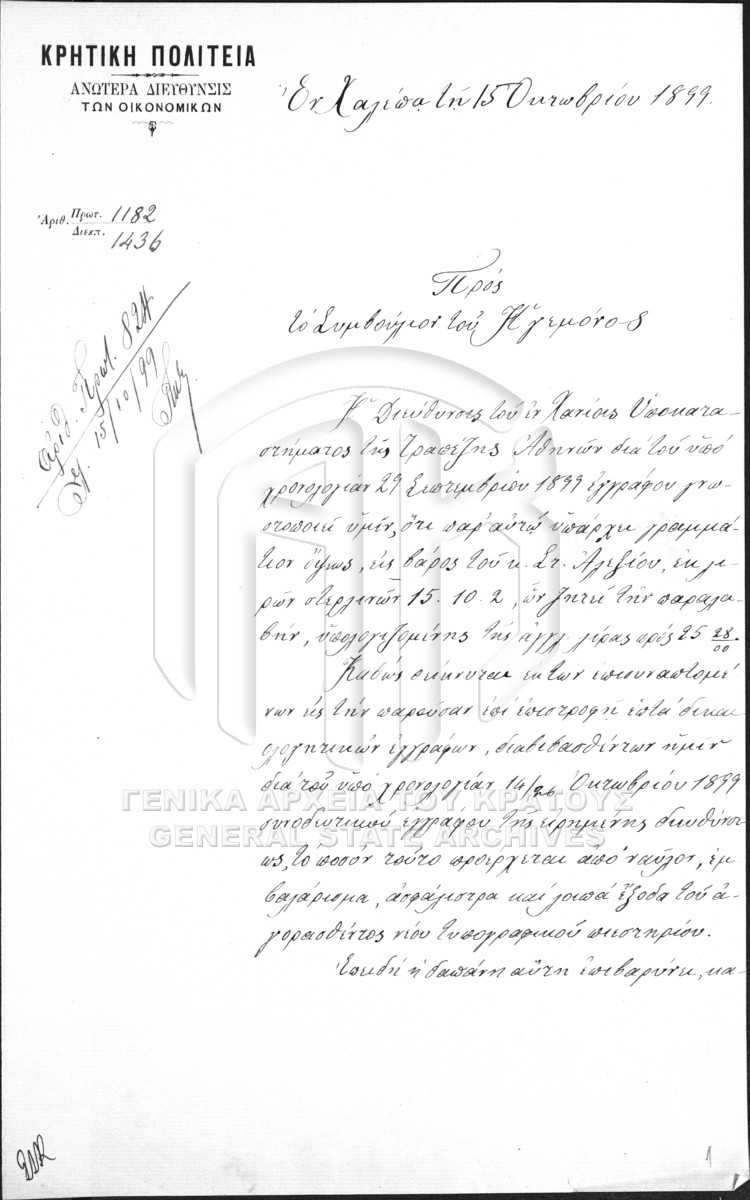 ΚΡΗΤΙΚΗ ΠΟΛΙΤΕΙΑ
ΑΝΩΤΕΡΑ ΔΙΕΥΘΥΝΣΙΣ
ΤΩΝ ΟΙΚΟΝΟΜΙΚΩΝ
Ἐν Χαλέπᾳ τῇ 15 Ὀκτωβρίου 1899.
Ἀριθ. Πρωτ. 1182
Διεκπ. 1436
Ἀριθ. Πρωτ. 824
15/10/99
Πρός
τό Συμβούλιον τοῦ Ἡγεμόνος
Ἡ Διεύθυνσις τοῦ ἐν Χανίοις Ὑποκατα-
στήματος τῆς Τραπέζης Ἀθηνῶν διά τοῦ ὑπό
χρονολογίαν 29 Σεπτεμβρίου 1899 ἐγγράφου γνω-
στοποιεῖ ὑμῖν, ὅτι παρ' αὐτῷ ὑπάρχει γραμμά-
τιον ὄψεως, εἰς βάρος τοῦ κ. Στ. Ἀλεξίου, ἐκ λι-
ρῶν στερλινῶν 15.10.2, ὧν ζητεῖ τήν παραλα-
βήν, ὑπολογιζομένης τῆς ἀγγλ. λίρας πρός 25 28/00.
Καθώς δείκνυται ἐκ τῶν ἐπισυναπτομέ-
νων εἰς τήν παροῦσαν ἐπί ἐπιστροφῇ ἑπτά δικαι
ολογητικῶν ἐγγράφων, διαβιβασθέντων ἡμῖν
διά τοῦ ὑπό χρονολογίαν 14/26 Ὀκτωβρίου 1899
συνοδευτικοῦ ἐγγράφου τῆς εἰρημένης διευθύνσε
ως, τό ποσόν τοῦτο προέρχεται ἀπό ναῦλον, ἐμ-
βαλάρισμα, ἀσφάλιστρα καί λοιπά ἔξοδα τοῦ ἀ-
γορασθέντος νέου τυπογραφικοῦ πιεστηρίου.
Ἐπειδή ἡ δαπάνη αὕτη ἐπιβαρύνει, κα-
ΓΕΝΙΚΑ ΑΡΧΕΙΑ ΤΟΥ ΚΡΑΤΟΥΣ
GENERAL STATE ARCHIVES
1